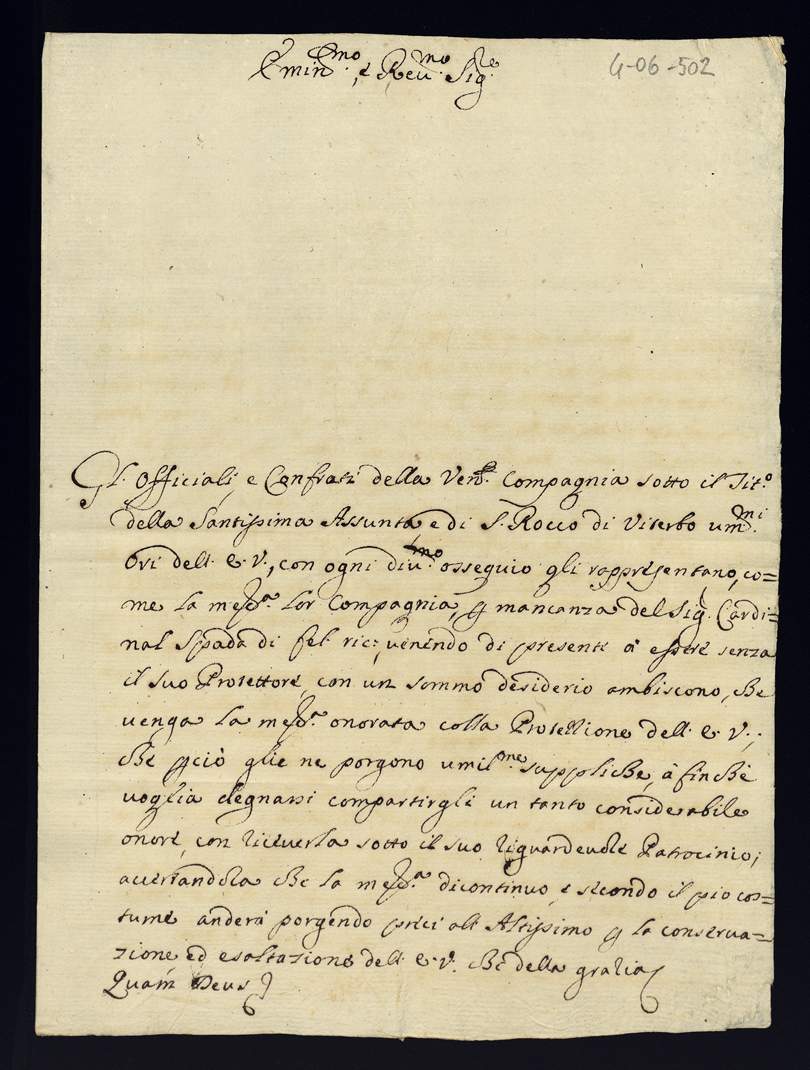 Emin.mo, e Rev.mo Sig.re
4-06-502
Gl. Officiali, e Confrati della Ven.e Compagnia sotto il Tit.o
della Santissima Assunta e di S. Rocco di Viterbo um.mi
Ori dell' E. V., con ogni div.mo ossequio gli rappresentano, co=
me la med.a lor Compagnia, p mancanza del Sig. Cardi=
nal Spada di fel. ric:, venendo di presente a essere senza
il suo Protettore, con un sommo desiderio ambiscono, che
venga la med.a onorata colla Protettione dell' E. V.;
Che pciò glie ne porgono umil.me suppliche, à finche
voglia degnarsi compartirgli un tanto considerabile
onore, con riceverla sotto il suo riguardevole Patrocinio;
accertandola che la med.a dicontinuo, e secondo il pio cos=
tume anderà porgendo preci all' Altissimo p la conserva=
zione ed esaltazione dell' E. V. Che della grazia
Quam Deus